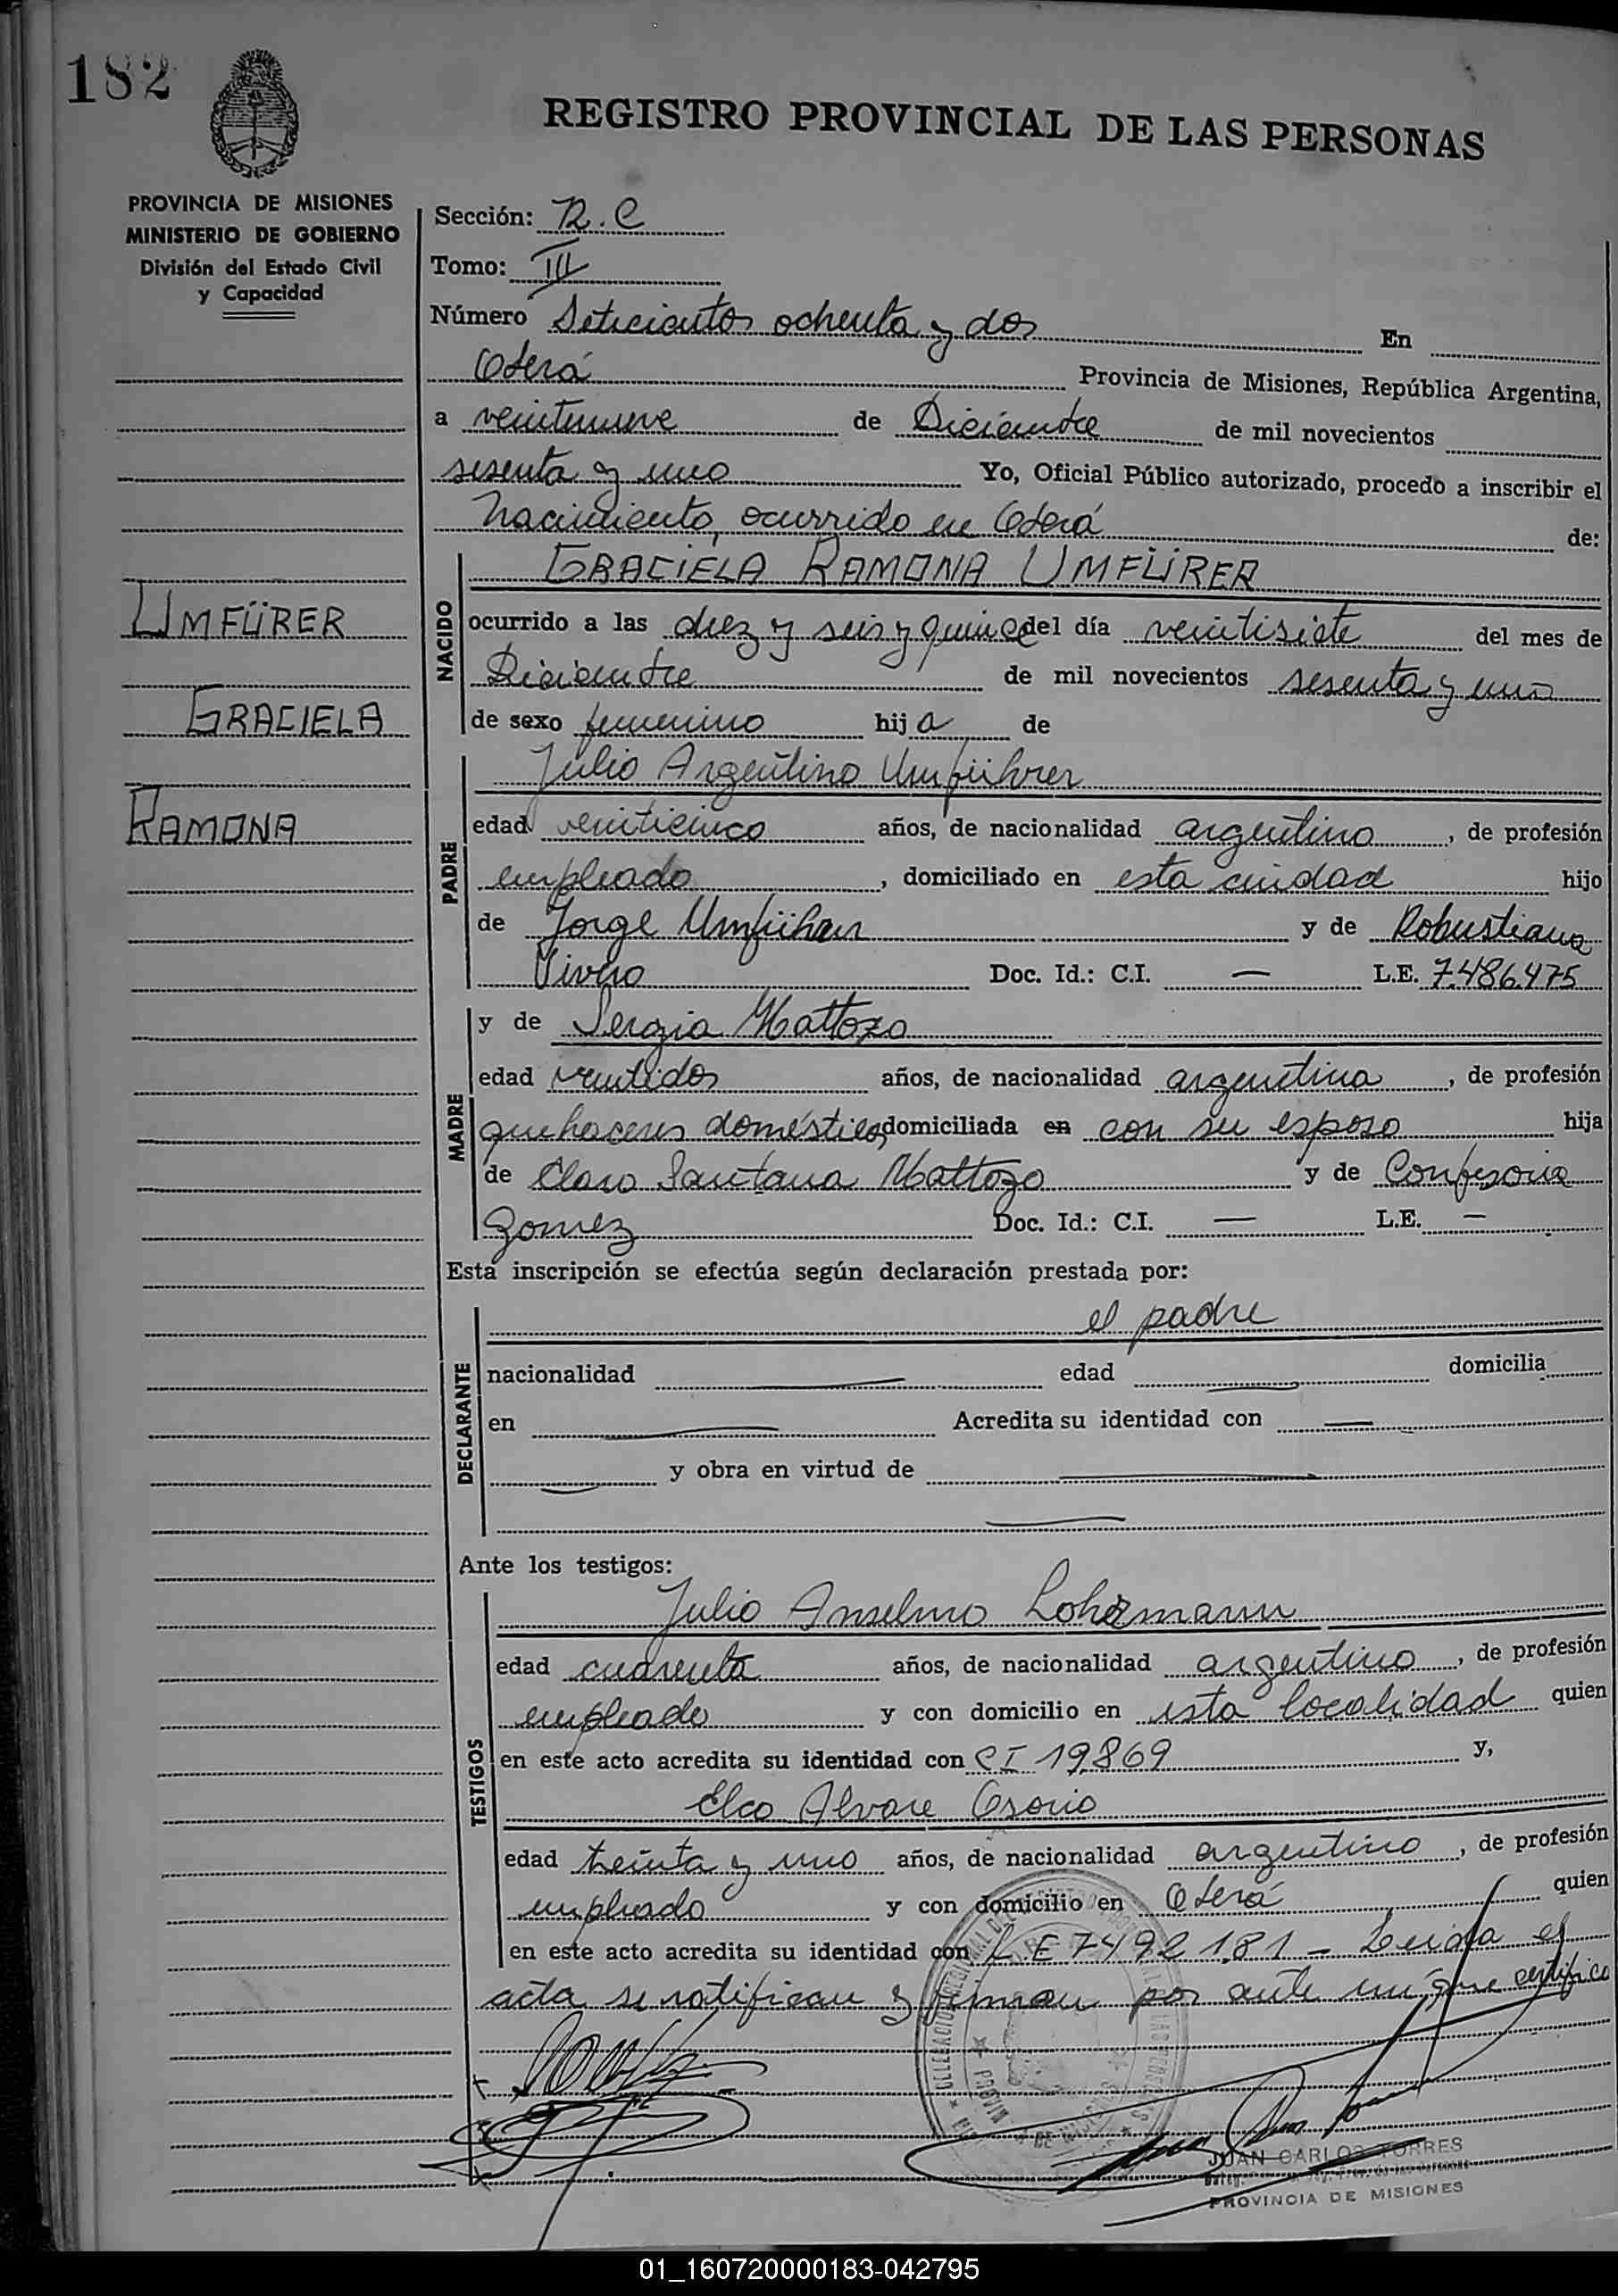 182
REGISTRO PROVINCIAL DE LAS PERSONAS
PROVINCIA DE MISIONES
MINISTERIO DE GOBIERNO
División del Estado Civil
y Capacidad
Sección: R.C
Tomo: III
Número Seteciento ochenta y dos En
Oberá Provincia de Misiones, República Argentina,
a veintinueve de Diciembre de mil novecientos
sesenta y uno Yo, Oficial Público autorizado, procedo a inscribir el
Nacimiento, ocurrido en Oberá de:
UMFÜRER
GRACIELA
RAMONA
NACIDO
GRACIELA RAMONA UMFÜRER
ocurrido a las diez y seis y quince del día veintisiete del mes de
Diciembre de mil novecientos sesenta y uno
de sexo femenino hija de
PADRE
Julio Argentino Umführer
edad veinticinco años, de nacionalidad argentino, de profesión
empleado, domiciliado en esta ciudad hijo
de Jorge Umführer y de Robustiana
Vivero Doc. Id.: C.I. — L.E. 7.486.475
MADRE
y de Sergia Mattozo
edad veintidos años, de nacionalidad argentina, de profesión
quehaceres domésticos domiciliada en con su esposo hija
de Claro Santana Mattozo y de Confesoria
Gomez Doc. Id.: C.I. — L.E. —
Esta inscripción se efectúa según declaración prestada por:
DECLARANTE
el padre
nacionalidad — edad — domicilia
en — Acredita su identidad con —
— y obra en virtud de —
Ante los testigos:
TESTIGOS
Julio Anselmo
edad cuarenta años, de nacionalidad argentino, de profesión
empleado y con domicilio en esta localidad quien
en este acto acredita su identidad con CI 19.869 y,
Elco Alvare Osorio
edad treinta y uno años, de nacionalidad argentino, de profesión
empleado y con domicilio en Oberá quien
en este acto acredita su identidad con L.E 7492.181 - Leida el
acta se ratifican y firman por ante mi que certifico
JUAN CARLOS TORRES
PROVINCIA DE MISIONES
01_160720000183-042795